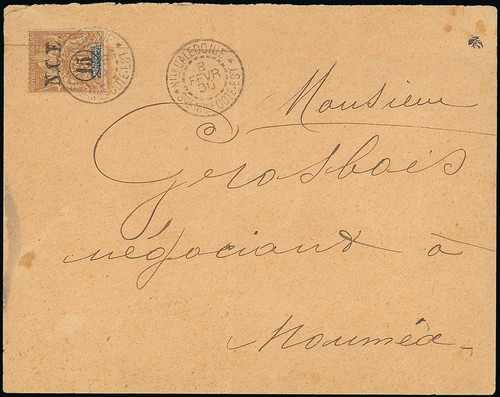 N.C.E.
15
Nlle CALEDONIE
8
FEVR
COTE-EST
Monsieur
Grosbois
négociant à
Nouméa